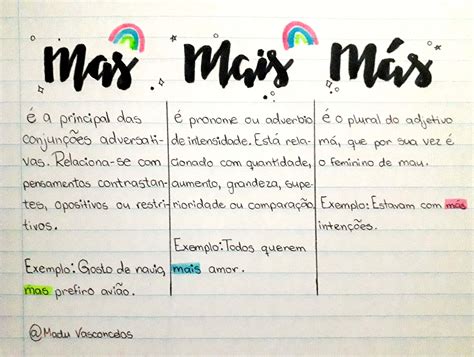 Mas
é a principal das
conjunções adversati-
vas. Relaciona-se com
pensamentos contrastan-
tes, opositivos ou restri-
tivos.
Exemplo: Gosto de navio,
mas prefiro avião.
Mais
é pronome ou adverbio
de intensidade. Está rela-
cionado com quantidade,
aumento, grandeza, supe-
rioridade ou comparação.
Exemplo: Todos querem
mais amor.
Más
é o plural do adjetivo
má, que por sua vez é
o feminino de mau.
Exemplo: Estavam com más
intenções.
@Madu Vasconcelos